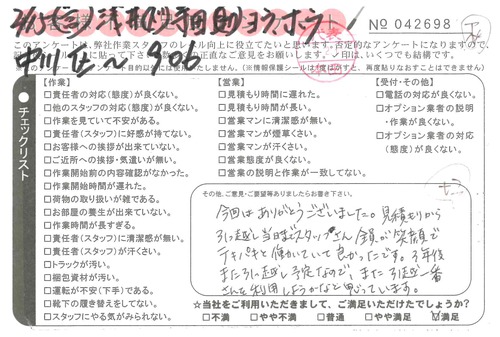 No 042698
このアンケートは、弊社作業スタッフのレベル向上に役立てたいと思います。否定的なアンケートになりますので、
チェックリスト
【作業】
□責任者の対応(態度)が良くない。
□他のスタッフの対応(態度)が良くない。
□作業を見ていて不安がある。
□責任者(スタッフ)に好感が持てない。
□お客様への挨拶が出来ていない。
□ご近所への挨拶・気遣いが無い。
□作業開始前の内容確認がなかった。
□作業開始時間が遅れた。
□荷物の取り扱いが雑である。
□お部屋の養生が出来ていない。
□作業時間が長すぎる。
□責任者(スタッフ)に清潔感が無い。
□責任者(スタッフ)が汗くさい。
□トラックが汚い。
□梱包資材が汚い。
□運転が不安(下手)である。
□靴下の履き替えをしてない。
□スタッフにやる気がみられない。
【営業】
□見積もり時間に遅れた。
□見積もり時間が長い。
□営業マンに清潔感が無い。
□営業マンが煙草くさい。
□営業マンが汗くさい。
□営業態度が良くない。
□営業の説明と作業が一致してない。
【受付・その他】
□電話の対応が良くない。
□オプション業者の説明
・作業が良くない。
□オプション業者の対応
(態度)が良くない。
その他、ご意見・ご要望等ありましたらお書き下さい。
今回はありがとうございました。見積もりから
引っ越し当日までスタッフさん全員が笑顔で
テキパキと働かれていて良かったです。3年後
また引っ越し予定なので、また引越一番
さんを利用しようかなと思っています。
☆当社をご利用いただきまして、ご満足いただけたでしょうか?
□不満 □やや不満 □普通 □やや満足 ☑満足